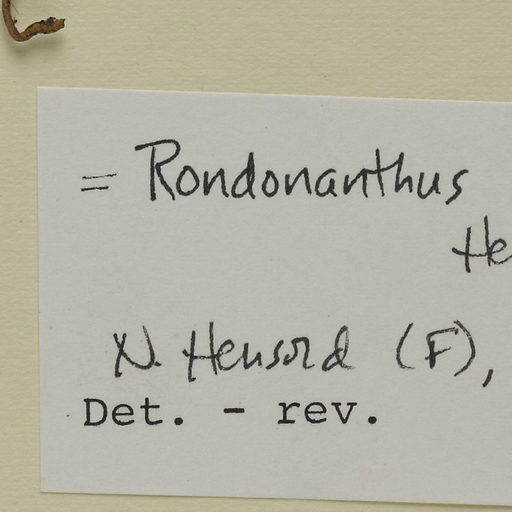 = Rondonanthus
He
N. Hensold (F),
Det. - rev.